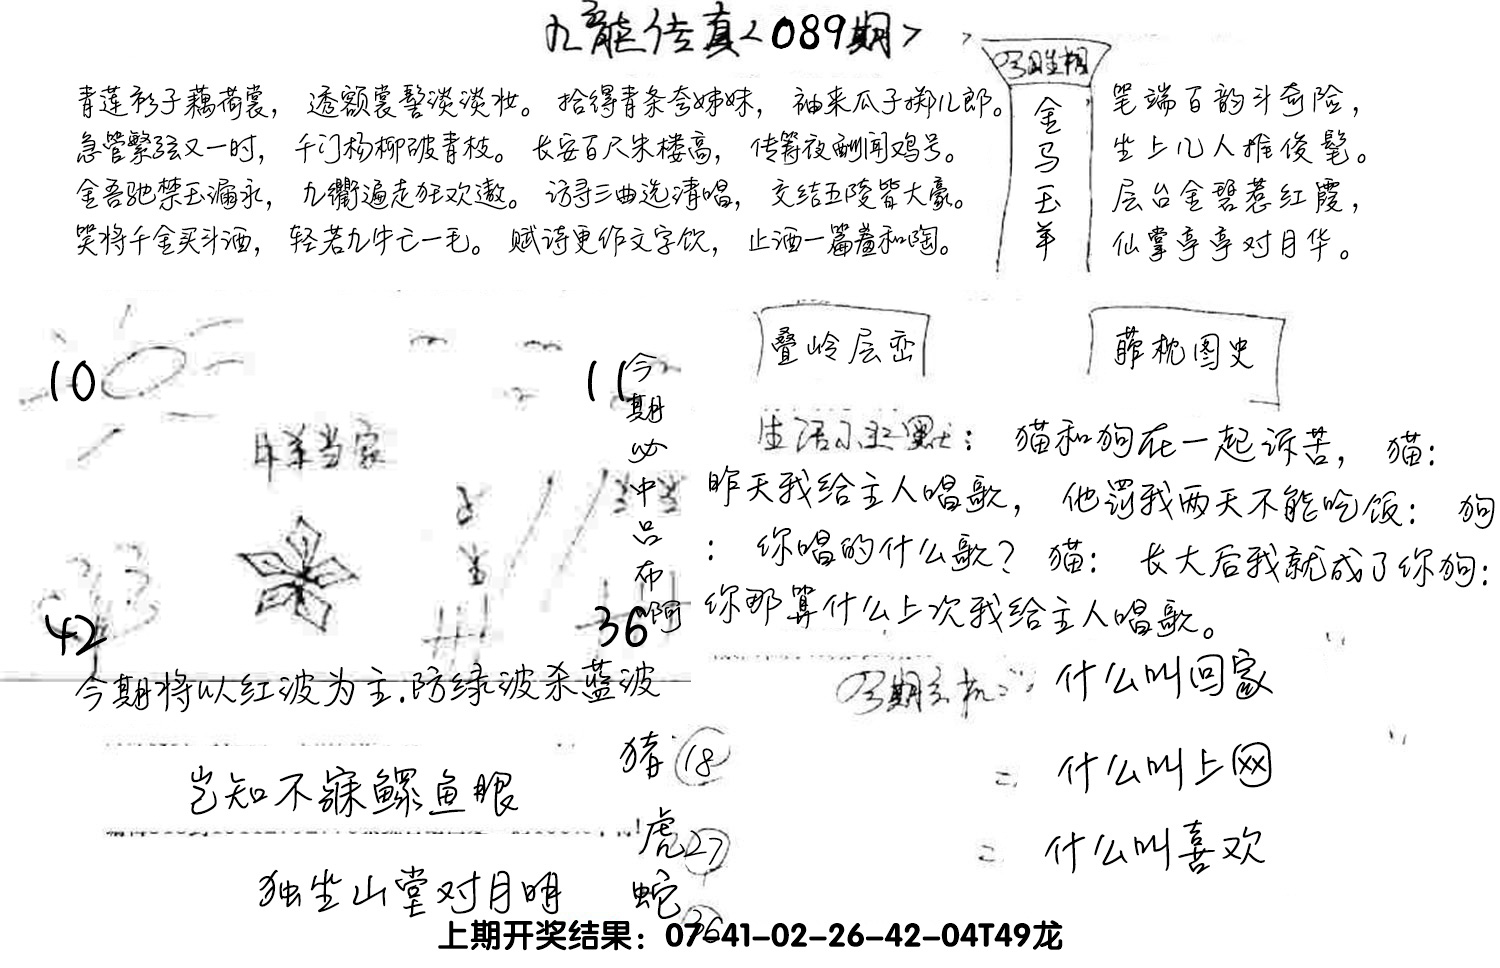 九龙传真<089期>
今期生相
金马玉羊
青莲衫子藕荷裳，透额裳髻淡淡妆。拾得青条夸姊妹，袖来瓜子掷儿郎。
急管繁弦又一时，千门杨柳破青枝。长安百尺朱楼高，传筹夜酬闻鸡号。
金吾驰禁玉漏永，九衢遍走狂欢遨。访寻三曲选清唱，交结五陵皆大豪。
笑将千金买斗酒，轻若九牛亡一毛。赋诗更作文字饮，止酒一篇羞和陶。
笔端百韵斗奇险，
坐上几人推俊髦。
层台金碧惹红霞，
仙掌亭亭对月华。
10
11
42
36
今期必中吕布啊
今期将以红波为主.防绿波杀蓝波
叠岭层峦
葄枕图史
生活幽默：猫和狗在一起诉苦，猫：
昨天我给主人唱歌，他罚我两天不能吃饭：狗
：你唱的什么歌？猫：长大后我就成了你狗：
你那算什么上次我给主人唱歌。
今期玄机：什么叫回家
= 什么叫上网
= 什么叫喜欢
岂知不寐鳏鱼眼
独坐山堂对月明
猪 18
虎 27
蛇 36
上期开奖结果：07-41-02-26-42-04T49龙